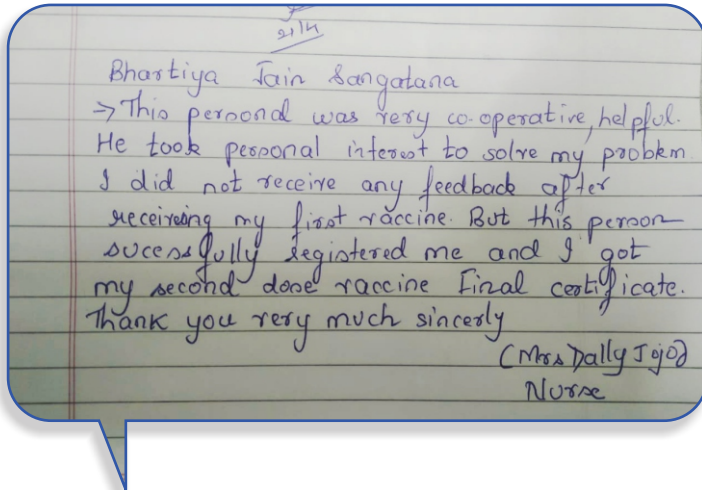 21/4
Bhartiya Jain Sangatana
→ This personal was very co-operative, helpful.
He took personal interest to solve my problem
I did not receive any feedback after
receiveing my first vaccine. But this person
sucessfully registered me and I got
my second dose vaccine Final certificate.
Thank you very much sincerly
(Mrs Dally Jojo)
Nurse